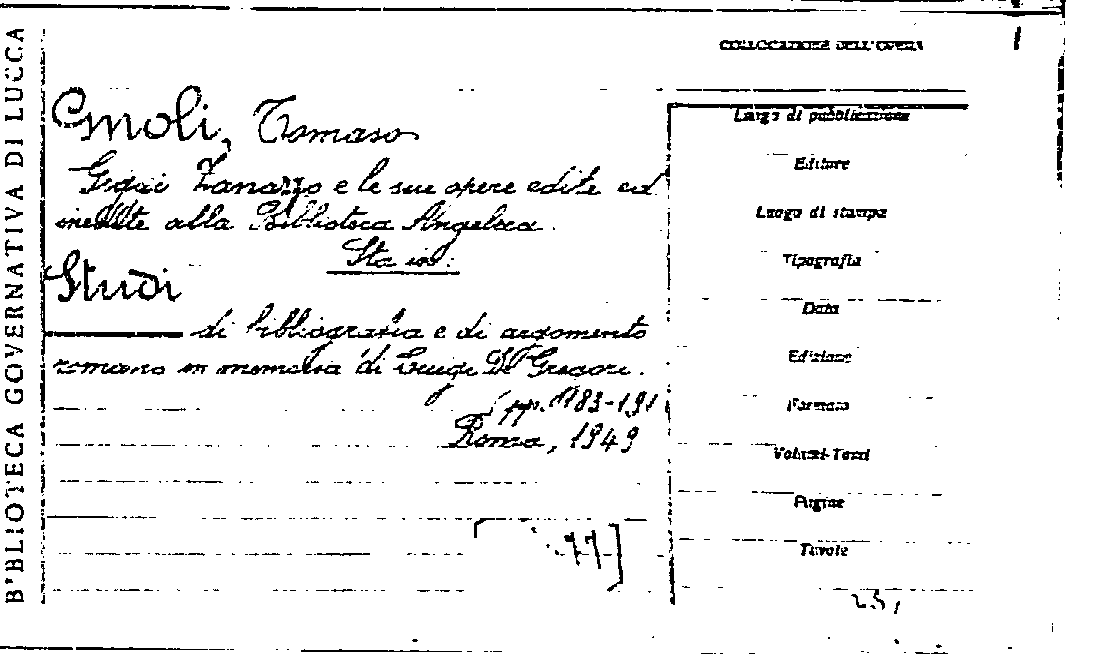 BIBLIOTECA GOVERNATIVA DI LUCCA
COLLOCAZIONE DELL'OPERA
Gnoli, Tomaso
Gigi Zanazzo e le sue opere edite ed
inedite alla Biblioteca Angelica.
Sta in:
Studi
di bibliografia e di argomento
romano in memoria di Luigi De Gregori.
pp. 183-191
Roma, 1949
Luogo di pubblicazione
Editore
Luogo di stampa
Tipografia
Data
Edizione
Formato
Volumi-Tomi
Pagine
Tavole